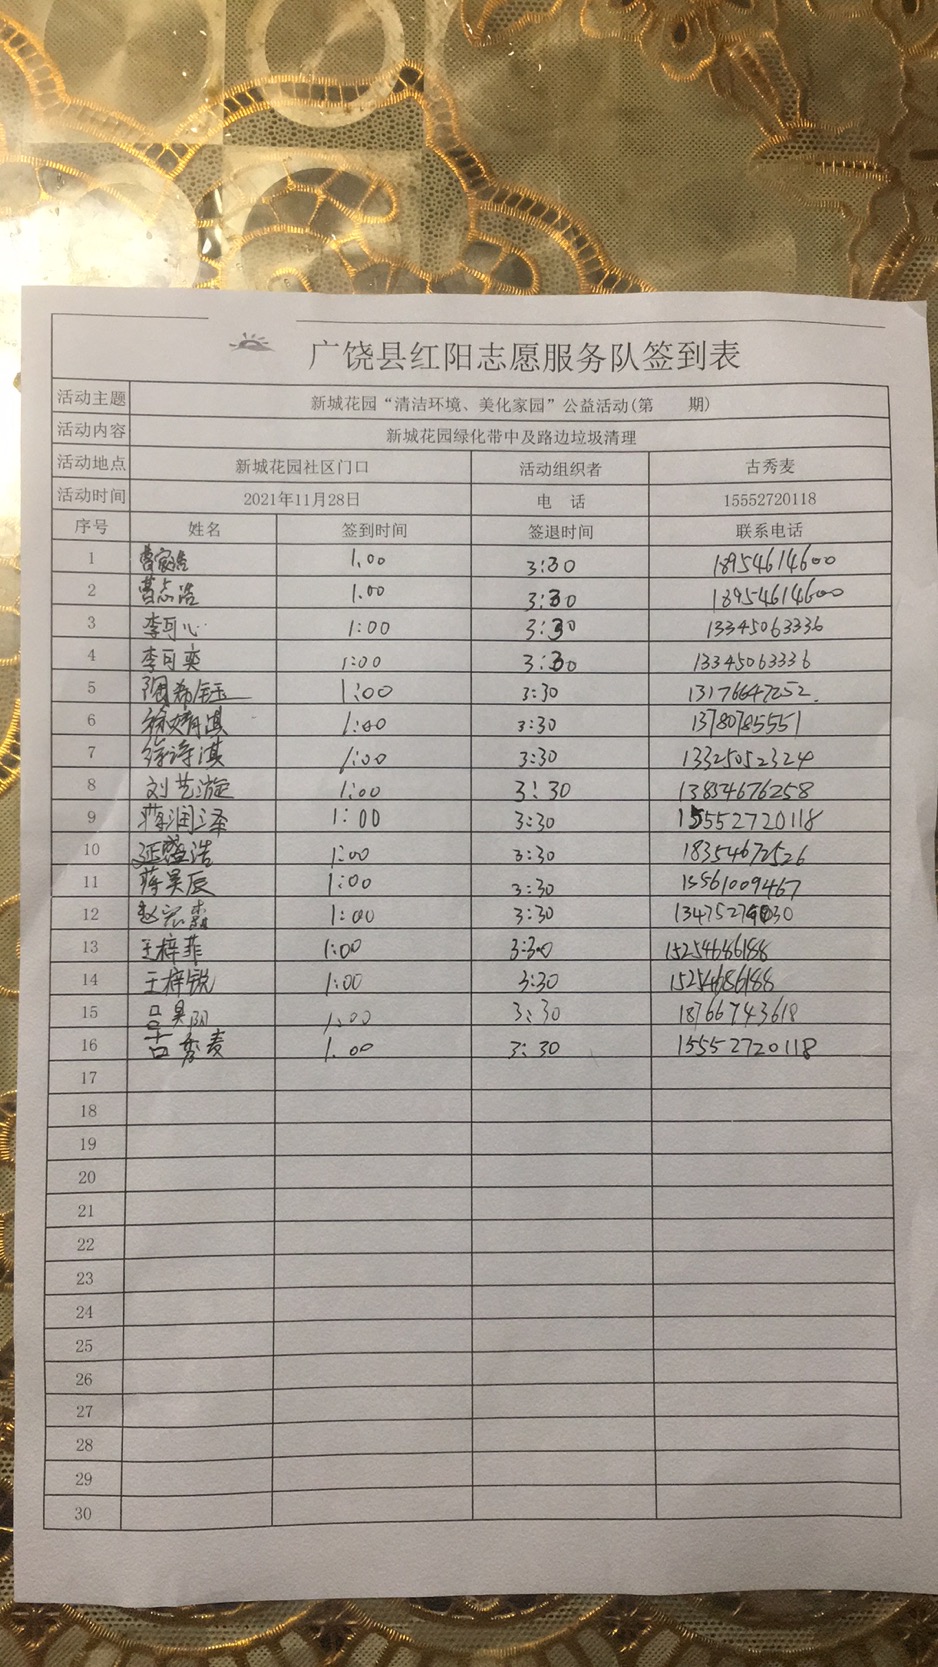 广饶县红阳志愿服务队签到表
活动主题 新城花园“清洁环境、美化家园”公益活动(第 期)
活动内容 新城花园绿化带中及路边垃圾清理
活动地点 新城花园社区门口 活动组织者 古秀麦
活动时间 2021年11月28日 电 话 15552720118
序号 姓名 签到时间 签退时间 联系电话
1 1.00 3:30 18954614600
2 曹志浩 1.00 3:30 18954614600
3 李可心 1:00 3:30 13345063336
4 李可奕 1:00 3:30 13345063336
5 陶希钰 1:00 3:30 13176647252.
6 徐婧淇 1:00 3:30 13780785551
7 徐诗淇 1:00 3:30 13325052324
8 刘艺漩 1:00 3:30 13854676258
9 蒋润泽 1:00 3:30 15552720118
10 延盛浩 1:00 3:30 18354672526
11 蒋昊辰 1:00 3:30 15561009467
12 赵宏森 1:00 3:30
13 王梓菲 1:00 3:30 15254686188
14 王梓锐 1:00 3:30 15254686188
15 吕昊阳 1:00 3:30 18766743618
16 古秀麦 1.00 3:30 15552720118
17
18
19
20
21
22
23
24
25
26
27
28
29
30